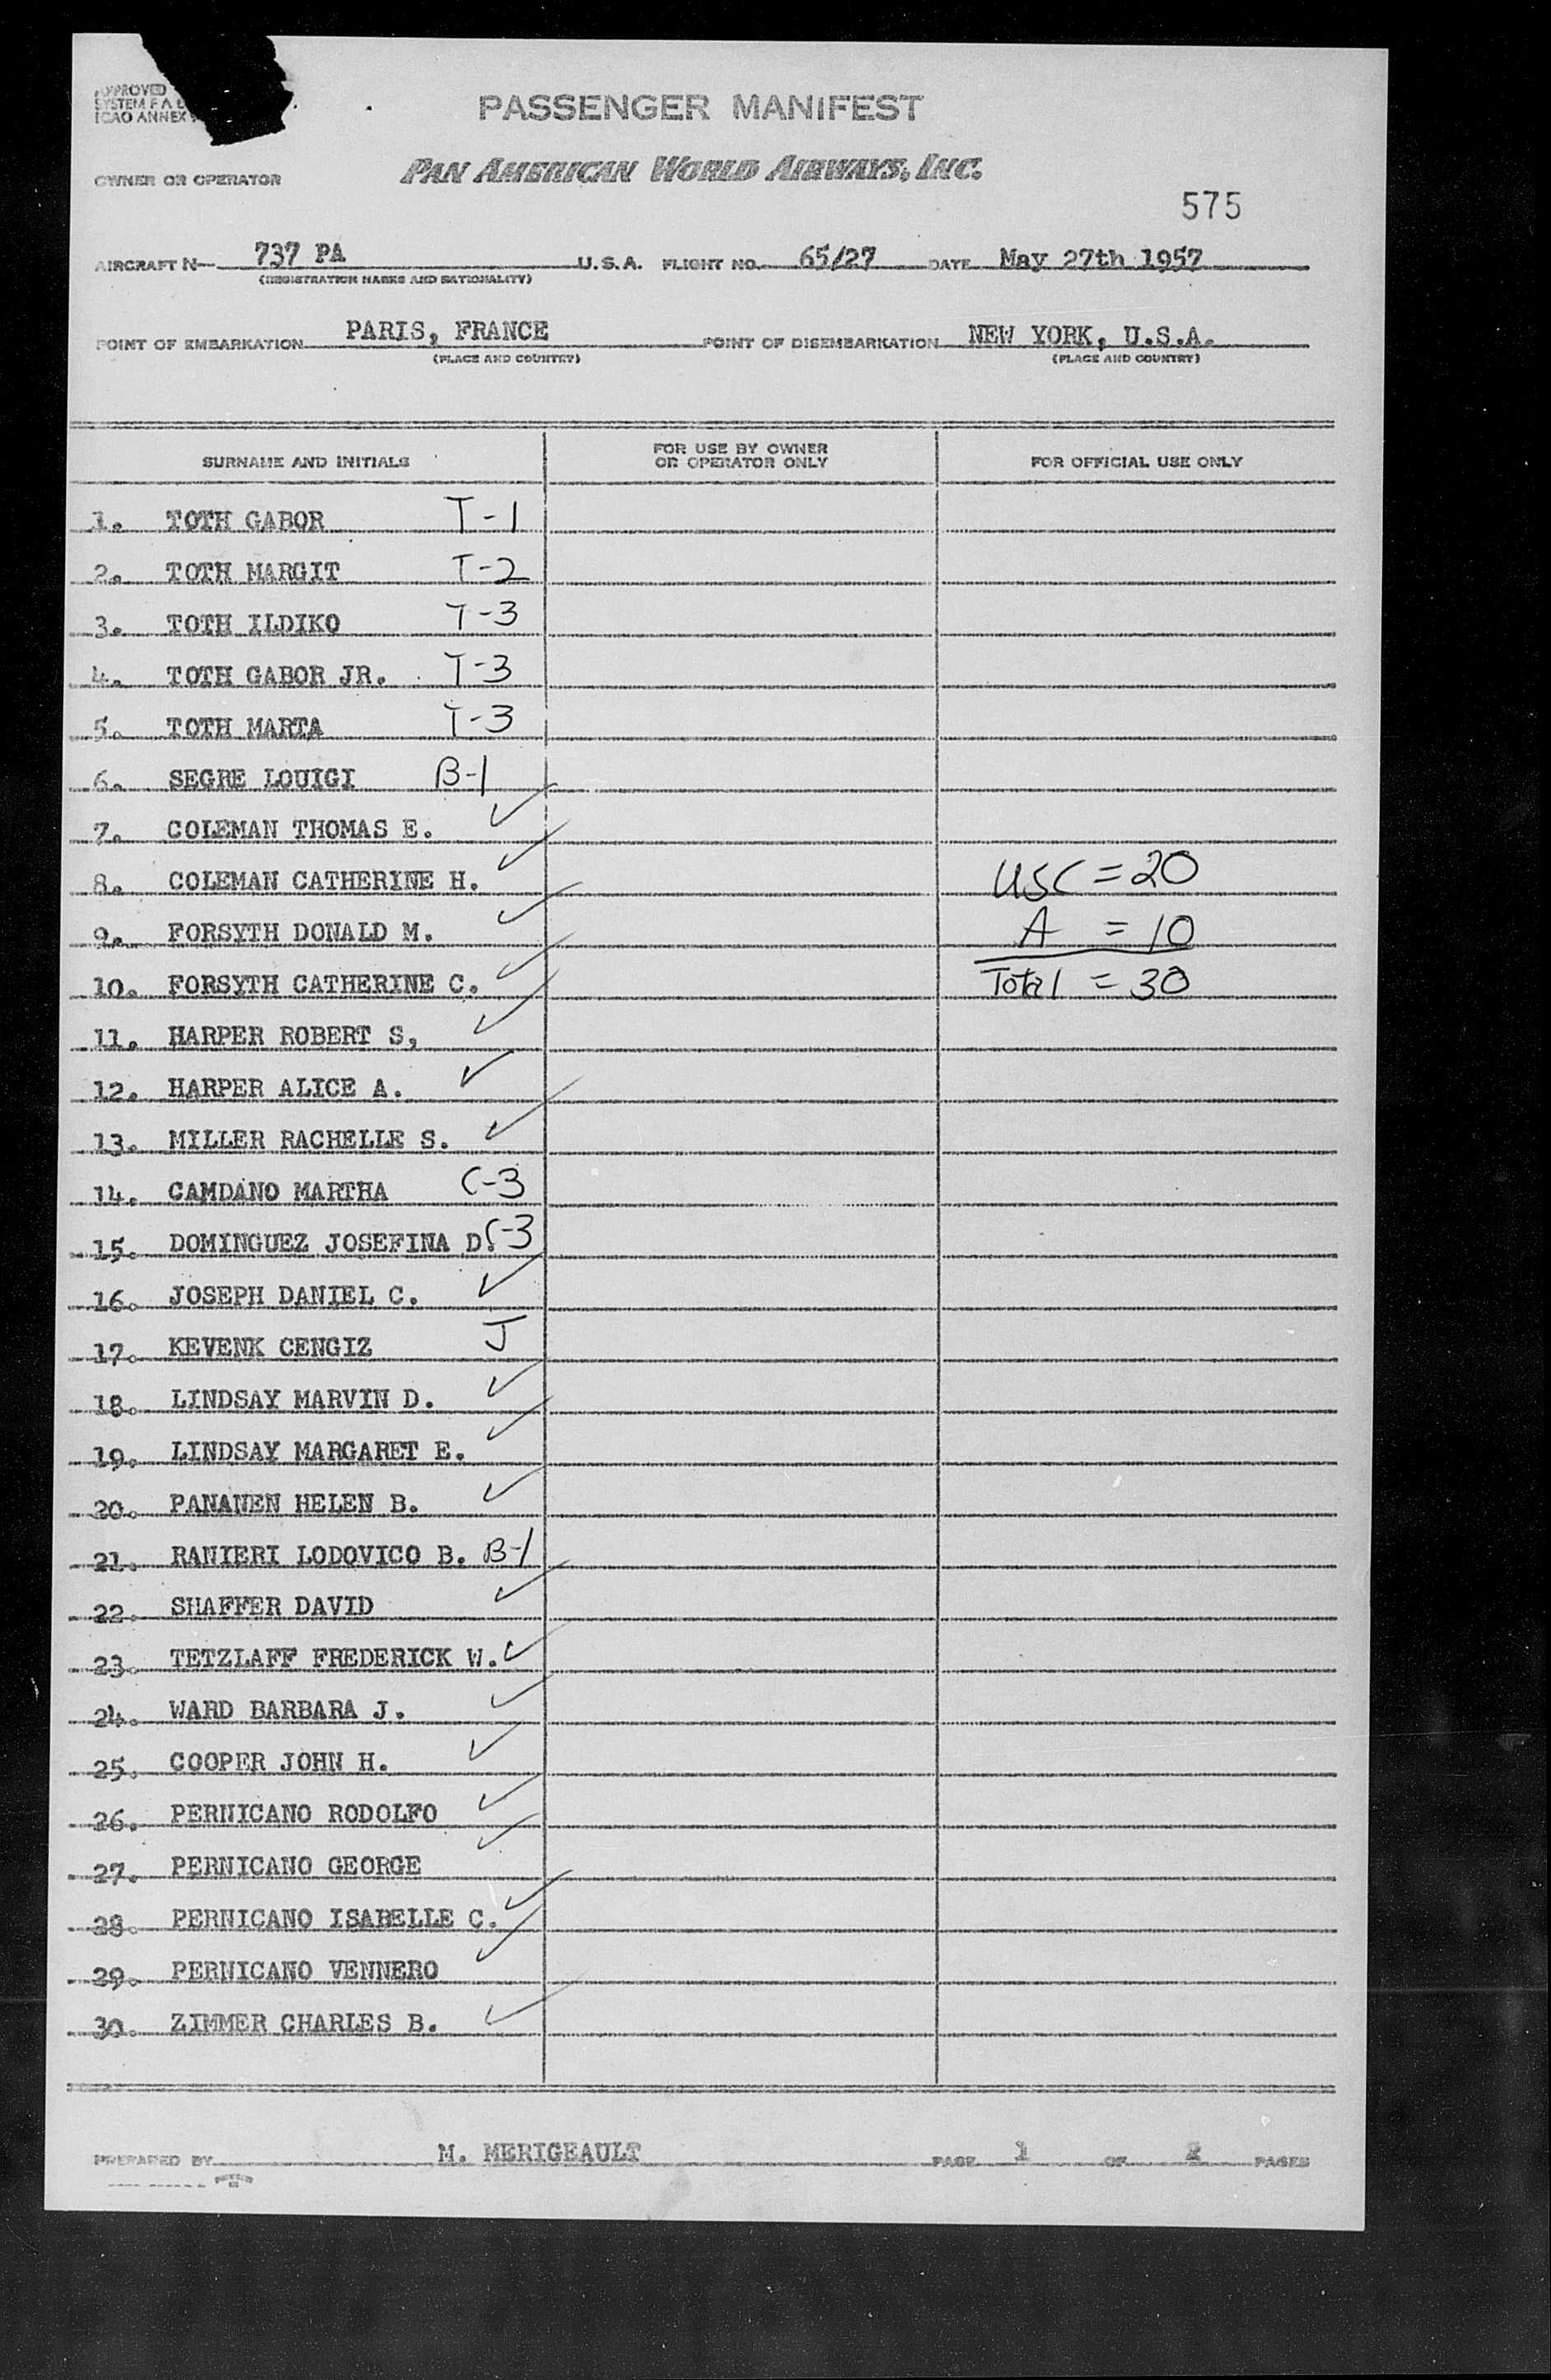 APPROVED
SYSTEM F A L
ICAO ANNEX
PASSENGER MANIFEST
OWNER OR OPERATOR PAN AMERICAN WORLD AIRWAYS, INC.
575
AIRCRAFT N— 737 PA U.S.A. FLIGHT NO. 65/27 DATE May 27th 1957
(REGISTRATION MARKS AND NATIONALITY)
POINT OF EMBARKATION PARIS, FRANCE POINT OF DISEMBARKATION NEW YORK, U.S.A.
(PLACE AND COUNTRY) (PLACE AND COUNTRY)
SURNAME AND INITIALS FOR USE BY OWNER OR OPERATOR ONLY FOR OFFICIAL USE ONLY
1. TOTH GABOR T-1
2. TOTH MARGIT T-2
3. TOTH ILDIKO T-3
4. TOTH GABOR JR. T-3
5. TOTH MARTA T-3
6. SEGRE LOUIGI B-1
7. COLEMAN THOMAS E. ✓
8. COLEMAN CATHERINE H. ✓ USC = 20
9. FORSYTH DONALD M. ✓ A = 10
10. FORSYTH CATHERINE C. ✓ Total = 30
11. HARPER ROBERT S, ✓
12. HARPER ALICE A. ✓
13. MILLER RACHELLE S. ✓
14. CAMDANO MARTHA C-3
15. DOMINGUEZ JOSEFINA D. C-3
16. JOSEPH DANIEL C. ✓
17. KEVENK CENGIZ J
18. LINDSAY MARVIN D. ✓
19. LINDSAY MARGARET E. ✓
20. PANANEN HELEN B. ✓
21. RANIERI LODOVICO B. B-1
22. SHAFFER DAVID ✓
23. TETZLAFF FREDERICK W. ✓
24. WARD BARBARA J. ✓
25. COOPER JOHN H. ✓
26. PERNICANO RODOLFO ✓
27. PERNICANO GEORGE ✓
28. PERNICANO ISABELLE C. ✓
29. PERNICANO VENNERO ✓
30. ZIMMER CHARLES B. ✓
PREPARED BY M. MERIGEAULT PAGE 1 OF 2 PAGES